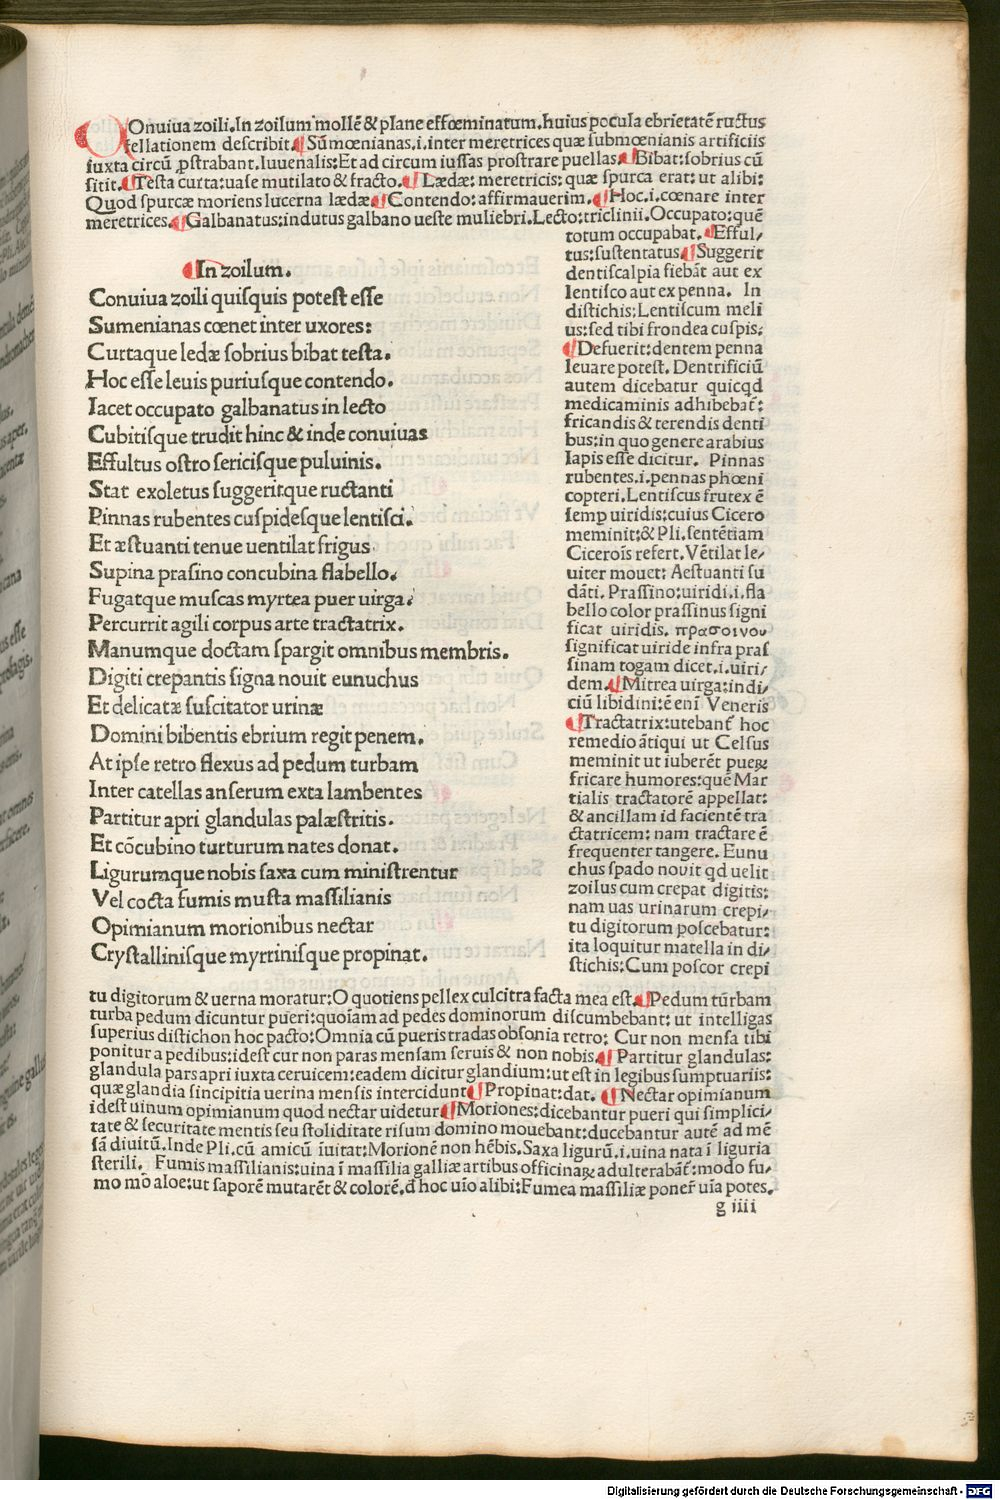 COnuiua zoili.In zoilum mollē & plane effœminatum.huius pocula ebrietatē ructus
fellationem describit.¶Sūmœnianas.i.inter meretrices quæ submœnianis artificiis
iuxta circū ꝓstrabant.Iuuenalis:Et ad circum iussas prostrare puellas.¶Bibat:sobrius cū
sitit.¶Testa curta:uase mutilato & fracto.¶Lædæ: meretricis: quæ spurca erat: ut alibi:
Quod spurcæ moriens lucerna lædæ¶Contendo: affirmauerim.¶Hoc.i.cœnare inter
meretrices.¶Galbanatus:indutus galbano ueste muliebri.Lecto:triclinii.Occupato:quē
totum occupabat.¶Efful/
tus:sustentatus.¶Suggerit
dentiscalpia fiebāt aut ex
lentisco aut ex penna. In
distichis:Lentiscum meli
us:sed tibi frondea cuspis.
¶Defuerit:dentem penna
leuare potest. Dentrificiū
autem dicebatur quicqd
medicaminis adhibebat᷑:
fricandis & terendis denti
bus:in quo genere arabius
lapis esse dicitur. Pinnas
rubentes.i.pennas phœni
copteri.Lentiscus frutex ē
semp uiridis:cuius Cicero
meminit:& Pli.sentētiam
Cicerois refert.Vētilat le/
uiter mouet: Aestuanti su
dāti. Prassino:uiridi.i.fla
bello color prassinus signi
ficat uiridis. πρασοινου
significat uiride infra pras
sinam togam dicet.i.uiri/
dem.¶Mitrea uirga:indi/
ciū libidini:ē eni Veneris
¶Tractatrix:utebant᷑ hoc
remedio ātiqui ut Celsus
meminit ut iuberēt pueꝝ
fricare humores:quē Mar
tialis tractatorē appellat:
& ancillam id facientē tra
ctatricem: nam tractare ē
frequenter tangere. Eunu
chus spado nouit qd uelit
zoilus cum crepat digitis:
nam uas urinarum crepi/
tu digitorum poscebatur:
ita loquitur matella in di/
stichis:Cum poscor crepi
¶In zoilum.
Conuiua zoili quisquis potest esse
Sumenianas cœnet inter uxores:
Curtaque ledæ sobrius bibat testa.
Hoc esse leuis puriusque contendo.
Iacet occupato galbanatus in lecto
Cubitisque trudit hinc & inde conuiuas
Effultus ostro sericisque puluinis.
Stat exoletus suggeritque ructanti
Pinnas rubentes cuspidesque lentisci.
Et æstuanti tenue uentilat frigus
Supina prasino concubina flabello.
Fugatque muscas myrtea puer uirga.
Percurrit agili corpus arte tractatrix.
Manumque doctam spargit omnibus membris.
Digiti crepantis signa nouit eunuchus
Et delicatæ suscitator urinæ
Domini bibentis ebrium regit penem.
At ipse retro flexus ad pedum turbam
Inter catellas anserum exta lambentes
Partitur apri glandulas palæstritis.
Et cōcubino turturum nates donat.
Ligurumque nobis saxa cum ministrentur
Vel cocta fumis musta massilianis
Opimianum morionibus nectar
Crystallinisque myrrinisque propinat.
tu digitorum & uerna moratur:O quotiens pellex culcitra facta mea est.¶Pedum turbam
turba pedum dicuntur pueri:quoiam ad pedes dominorum discumbebant: ut intelligas
superius distichon hoc pacto:Omnia cū pueris tradas obsonia retro: Cur non mensa tibi
ponitur a pedibus:idest cur non paras mensam seruis & non nobis.¶Partitur glandulas:
glandula pars apri iuxta ceruicem:eadem dicitur glandium:ut est in legibus sumptuariis:
quæ glandia sincipitia uerina mensis intercidunt¶Propinat:dat. ¶Nectar opimianum
idest uinum opimianum quod nectar uidetur¶Moriones:dicebantur pueri qui simplici/
tate & securitate mentis seu stoliditate risum domino mouebant:ducebantur autē ad mē
sā diuitū.Inde Pli.cū amicū iuitat:Morionē non hēbis.Saxa ligurū.i.uina nata ī liguria
sterili. Fumis massilianis:uina ī massilia galliæ artibus officinaꝝ adulterabāt᷑:modo fu/
mo mō aloe:ut saporē mutarēt & colorē.d̄ hoc uīo alibi:Fumea massiliæ poner᷑ uīa potes.
g iiii
Digitalisierung gefördert durch die Deutsche Forschungsgemeinschaft - DFG